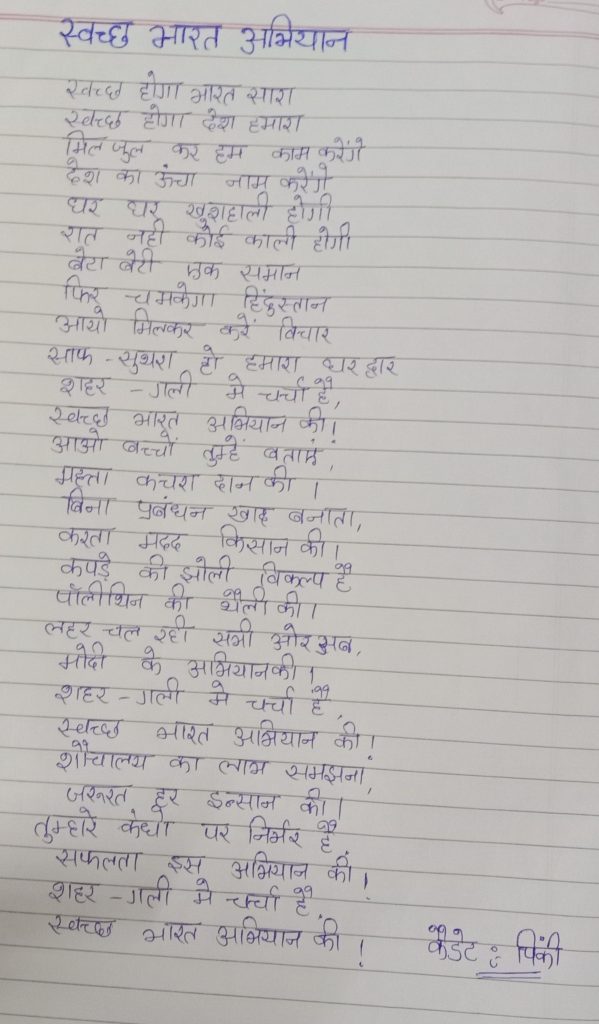 स्वच्छ भारत अभियान
स्वच्छ होगा भारत सारा
स्वच्छ होगा देश हमारा
मिल जुल कर हम काम करेंगे
देश का ऊंचा नाम करेंगे
घर घर खुशहाली होगी
रात नही कोई काली होगी
बेटा बेटी एक समान
फिर चमकेगा हिंदुस्तान
आयो मिलकर करें विचार
साफ - सुथरा हो हमारा घर द्वार
शहर - गली मे चर्चा है,
स्वच्छ भारत अभियान की।
आओ बच्चों तुम्हें बताएं,
महत्ता कचरा दान की।
बिना प्रबंधन खाद बनाता,
करता मदद किसान की।
कपड़े की झोली विकल्प है
पॉलीथिन की थैली की।
लहर चल रही सभी ओर अब,
मोदी के अभियानकी।
शहर - गली मे चर्चा है,
स्वच्छ भारत अभियान की।
शौचालय का लाभ समझना,
जरूरत हर इन्सान की।
तुम्हारे कंधो पर निर्भर है,
सफलता इस अभियान की।
शहर - गली मे चर्चा है,
स्वच्छ भारत अभियान की।
कैडेट : पिंकी